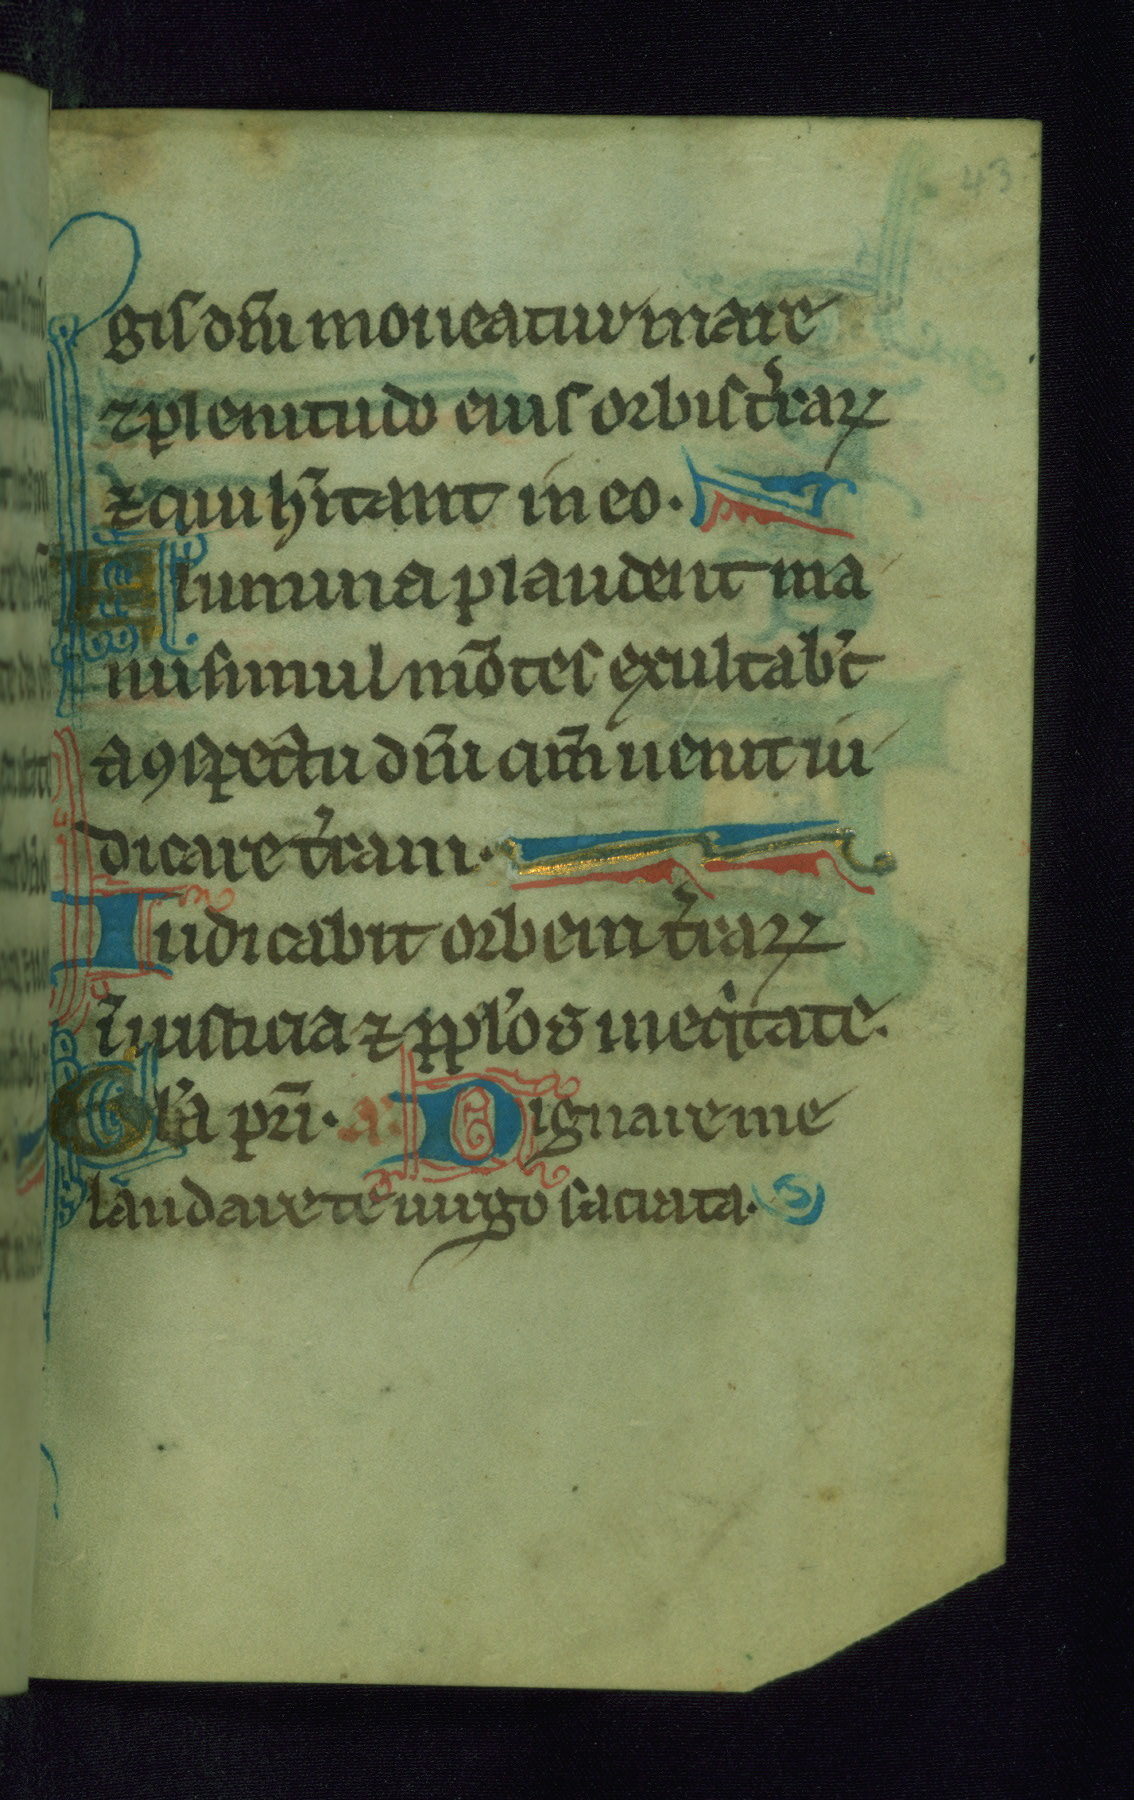 43
gis dñi moueatur mare
⁊ plenitudo eius orbis t̾raꝝ
⁊ qui h̃itant in eo.
Flumina plaudent ma
nu simul mõtes exultab̾t
a ꝯspectu dñi qm̃ uenit iu
dicare t̾ram.
Iudicabit orbem t̾raꝝ
ĩ iusticia ⁊ ppl̾os in eq̾itate.
Gl̾a pr̃i. a. Dignare me
laudare te uirgo sacrata.